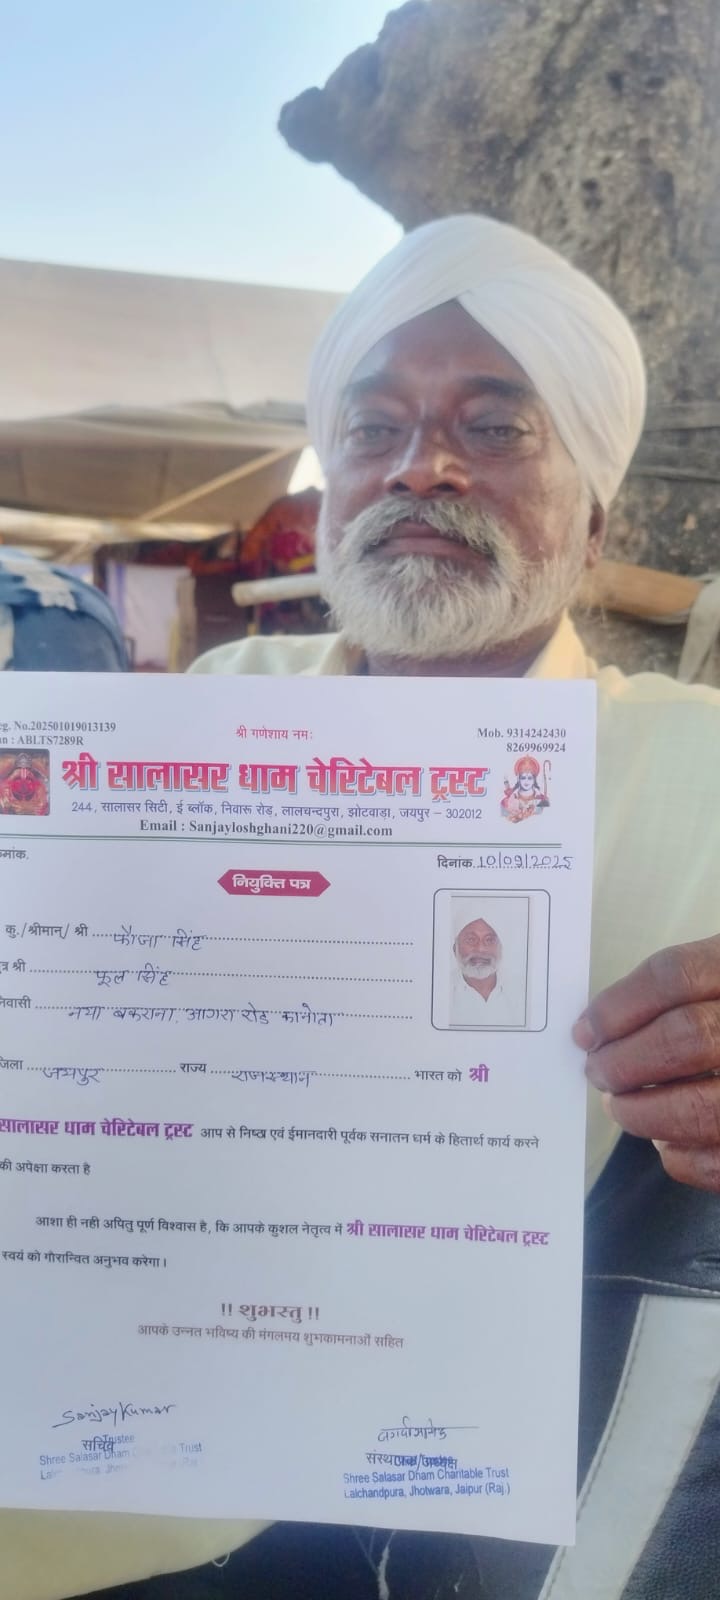 eg. No.202501019013139
n : ABLTS7289R
श्री गणेशाय नमः
Mob. 9314242430
8269969924
श्री सालासर धाम चेरिटेबल ट्रस्ट
244, सालासर सिटी, ई ब्लॉक, निवारू रोड़, लालचन्दपुरा, झोटवाड़ा, जयपुर – 302012
Email : Sanjayloshghani220@gmail.com
मांक.
दिनांक. 10/09/2025
नियुक्ति पत्र
कु./श्रीमान्/ श्री फौजा सिंह
त्र श्री फूल सिंह
निवासी नया बकराना, आगरा रोड कानोता
जिला जयपुर राज्य राजस्थान भारत को श्री
सालासर धाम चेरिटेबल ट्रस्ट आप से निष्ठा एवं ईमानदारी पूर्वक सनातन धर्म के हितार्थ कार्य करने
की अपेक्षा करता है
आशा ही नही अपितु पूर्ण विश्वास है, कि आपके कुशल नेतृत्व में श्री सालासर धाम चेरिटेबल ट्रस्ट
स्वयं को गौरान्वित अनुभव करेगा।
!! शुभस्तु !!
आपके उन्नत भविष्य की मंगलमय शुभकामनाओं सहित
Sanjay Kumar
सचिव
Trustee
Shree Salasar Dham Charitable Trust
संस्थापक/अध्यक्ष
Shree Salasar Dham Charitable Trust
Lalchandpura, Jhotwara, Jaipur (Raj.)